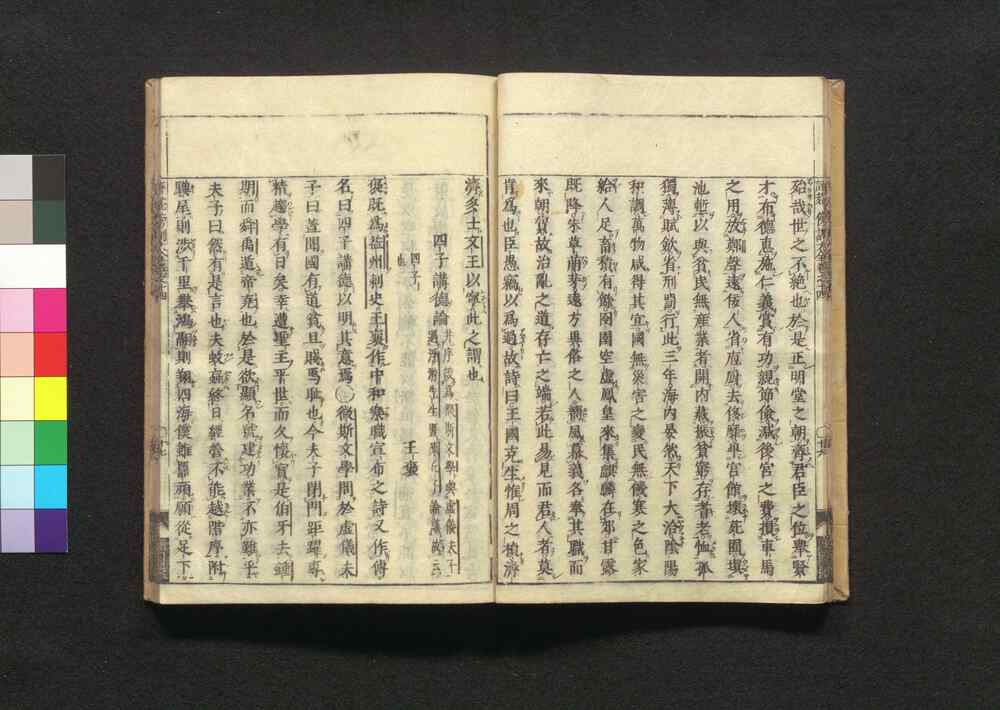 殆哉世之不絶也於是正明堂之朝齊君臣之位舉賢
才布德惠施仁義賞有功親節儉減後宮之費損車馬
之用放鄭聲遠佞人省庖廚去侈靡卑宮館壞苑囿填
池塹以與貧民無産業者開内藏振貧窮存耆老恤孤
獨薄賦歛省刑罰行此三年海内晏然天下大洽陰陽
和調萬物咸得其宜國無災害之變民無饑寒之色家
給人足畜積有餘囹圄空虚鳳皇來集麒麟在郊甘露
既降朱草萌芽遠方異俗之人嚮風慕義各奉其職而
來朝賀故治亂之道存亡之端若此易見而君人者莫
肯爲也臣愚竊以爲過故詩曰王國克生惟周之楨濟
濟多士文王以寧此之謂也
四子講德論
王襃
襃既爲益州刺史王襄作中和樂職宣布之詩又作傳
名曰四子講德以明其意焉○微斯文學問於虚儀夫
子曰蓋聞國有道貧且賤焉耻也今夫子閉門距躍專
精趨學有日矣幸遭聖王平世而久懷寶是伯牙去鍾
期而舜禹遁帝堯也於是欲顯名號建功業不亦難乎
夫子曰然有是言也夫蚊䖟終日經營不能越階序附
驥尾則渉千里攀鴻翮則翔四海僕雖嚚頑願從足下